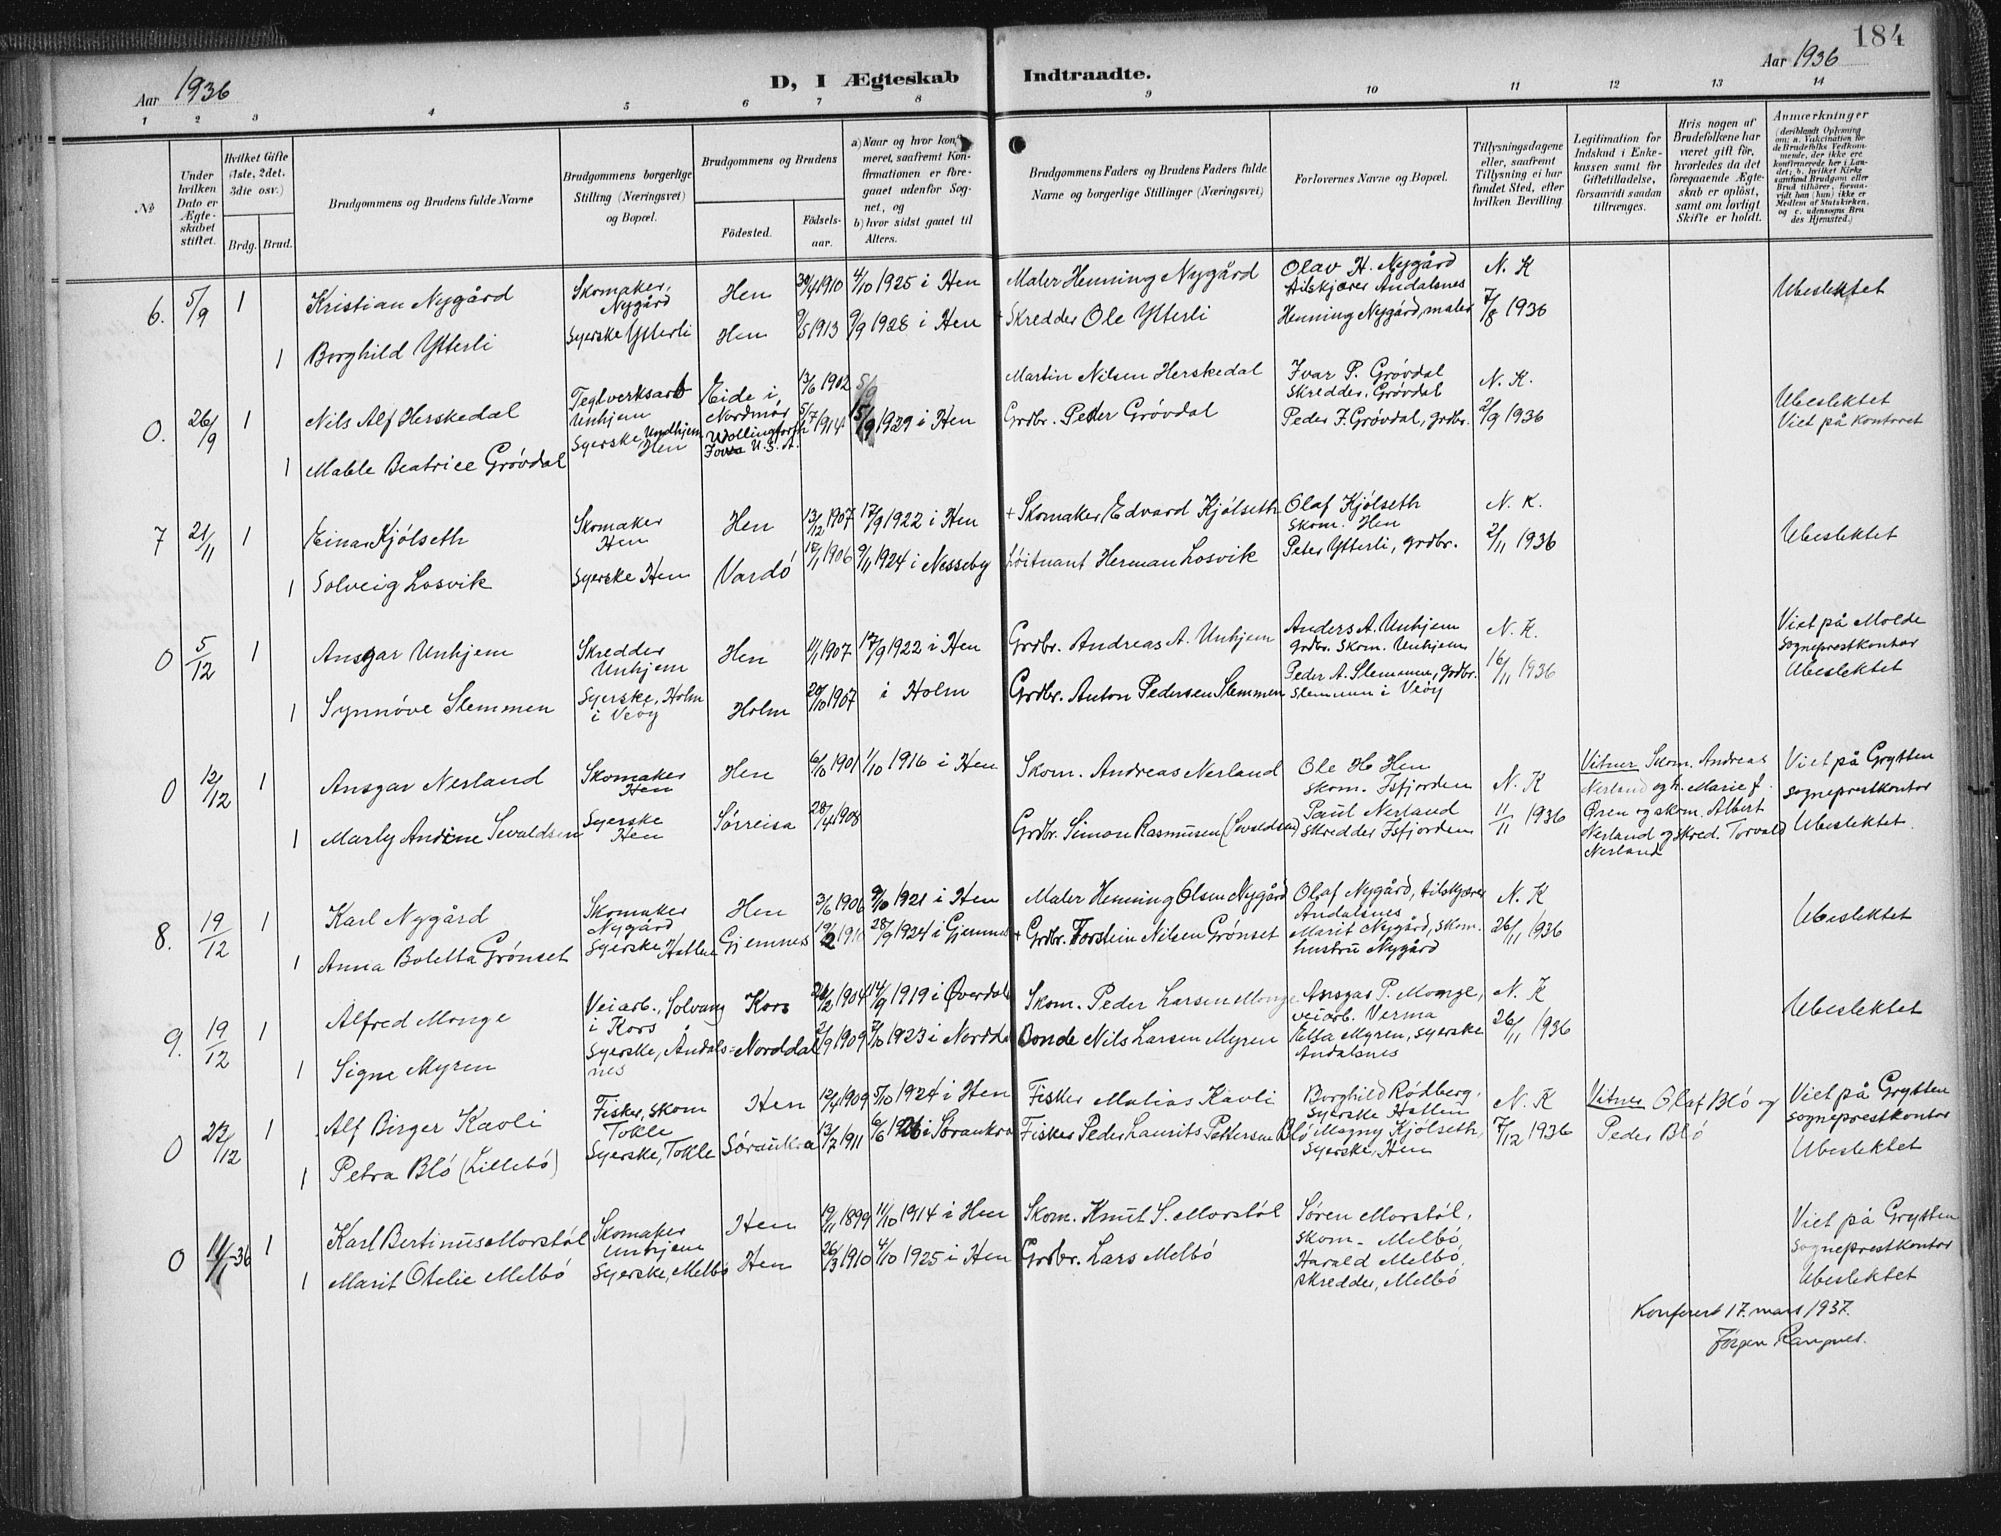 184
Aar 1936
D, I Ægteskab Indtraadte.
Aar 1936
1 2 3 4 5 6 7 8 9 10 11 12 13 14
№
Under hvilken Dato er Ægteskabet stiftet.
Hvilket Gifte (1ste, 2det. 3die osv.)
Brdg. Brud.
Brudgommens og Brudens fulde Navne
Brudgommens borgerlige Stilling (Næringsvei) og Bopæl.
Brudgommens og Brudens
Fødested.
Fødselsaar.
a) Naar og hvor konfirmeret, saafremt Konfirmationen er foregaaet udenfor Sognet, og
b) hvor sidst gaaet til Alters.
Brudgommens Faders og Brudens Faders fulde Navne og borgerlige Stillinger (Næringsvei)
Forlovernes Navne og Bopæl.
Tillysningsdagene eller, saafremt Tillysning ei har fundet Sted, efter hvilken Bevilling.
Legitimation for Indskud i Enkekassen samt for Giftetilladelse, forsaavidt saadan tiltrænges.
Hvis nogen af Brudefolkene har været gift før, hvorledes da det foregaaende Ægteskab er opløst, samt om lovligt Skifte er holdt.
Anmærkninger
6. 5/9 1 Kristian Nygård Skomaker, Nygård Hen 30/4 1910 4/10 1925 i Hen Maler Henning Nygård Olav H. Nygård Tilskjærer Åndalsnes N. K Ubeslektet
1 Borghild Ytterli Syerske Ytterli Hen 9/5 1913 9/9 1928 i Hen + Skredder Ole Ytterli Henning Nygård, maler 7/8 1936
0. 26/9 1 Nils Alf Herskedal Teglverksarb Unhjem Eide i Nordmør 13/6 1902 5/9 Martin Nilsen Herskedal Ivar P. Grøvdal Skredder, Grøvdal N. K. Ubeslektet
1 Mable Beatrice Grøvdal Syerske Undhjem Hen U. S. A. 5/7 1914 15/9 1929 i Hen Grdbr. Peder Grøvdal Peder I. Grøvdal, grdbr. 2/9 1936 Viet på kontoret
7 21/11 1 Einar Kjølseth Skomaker Hen Hen 13/12 1907 17/9 1922 i Hen + Skomaker Edvard Kjølseth Olaf Kjølseth Skom. Hen N. K. Ubeslektet
1 Solveig Losvik Syerske Hen Vardø 17/1 1906 9/11 1924 i Nesseby Løitnant Herman Losvik Peter Ytterli, grdbr. 2/11 1936
0 5/12 1 Ansgar Unhjem Skredder Unhjem Hen 1907 17/9 1922 i Hen Grdbr. Andreas A. Unhjem Anders A. Unhjem grdbr. Skom. Unhjem N. K. Viet på Molde sogneprestkontor
1 Synnøve Slemmen Syerske, Holm i Veøy Holm 20/10 1907 i Holm Grdbr. Anton Pedersen Slemmen Peder A. Slemmen, grdbr. Slemmen i Veøy 16/11 1936 Ubeslektet
0 12/12 1 Ansgar Nerland Skomaker Hen Hen 6/10 1901 1/10 1916 i Hen Skom. Andreas Nerland Ole H. Hen skom. Isfjorden N. K Vitner Skom. Andreas Nerland og h. Marie f. Viet på Grytten sogneprestkontor
1 Marly Andrine Sevaldsen Syerske Hen Sørreisa 28/4 1908 Grdbr. Simon Rasmusen (Sevaldsen) Paul Nerland skredder Isfjorden 11/11 1936 Øren og skom. Albert Nerland og skred. Torvald Nerland Ubeslektet.
8. 19/12 1 Karl Nygård Skomaker Nygård Hen 3/6 1906 9/10 1921 i Hen Maler Henning Olsen Nygård Olaf Nygård, tilskjærer Åndalsnes N. K Ubeslektet
1 Anna Boletta Grønset Syerske Hatlen Gjemnes 28/9 1924 i Gjemnes + Grdbr. Torstein Nilsen Grønset Marit Nygård, skom. hustru Nygård 26/11 1936
9. 19/12 1 Alfred Monge Veiarb., Solvang i Kors Kors 1904 14/9 1919 i Øverdal Skom. Peder Larsen Monge Ansgar P. Monge, veiarb. Verma N. K Ubeslektet
1 Signe Myren Syerske, Åndalsnes Norddal 2/9 1909 7/10 1923 i Norddal Bonde Nils Larsen Myren Elsa Myren, syerske Åndalsnes 26/11 1936
0 /12 1 Alf Birger Kavli Fisker, skom Tokle Hen 12/4 1909 5/10 1924 i Hen Fisker Matias Kavli Borghild Rødberg, Syerske Hatlen N. K Vitner Olaf Blø og Viet på Grytten sogneprestkontor
1 Petra Blø (Lillebø) Syerske, Tokle Søraukra 13/7 1911 6/6 1926 i Søraukra Fisker Peder Laurits Pettersen Blø Magny Kjølseth, Syerske, Hen 7/12 1936 Peder Blø Ubeslektet
0 -36 1 Karl Bertinus Morstøl Skomaker Unhjem Hen 19/11 1899 11/10 1914 i Hen Skom. Knut S. Morstøl Søren Morstøl, skom. Melbø Viet på Grytten sogneprestkontor
1 Marit Otelie Melbø Syerske, Melbø Hen 26/3 1910 4/10 1925 i Hen Grdbr. Lars Melbø Harald Melbø, skredder, Melbø Ubeslektet
Konferert 17. mars 1937.
Jørgen